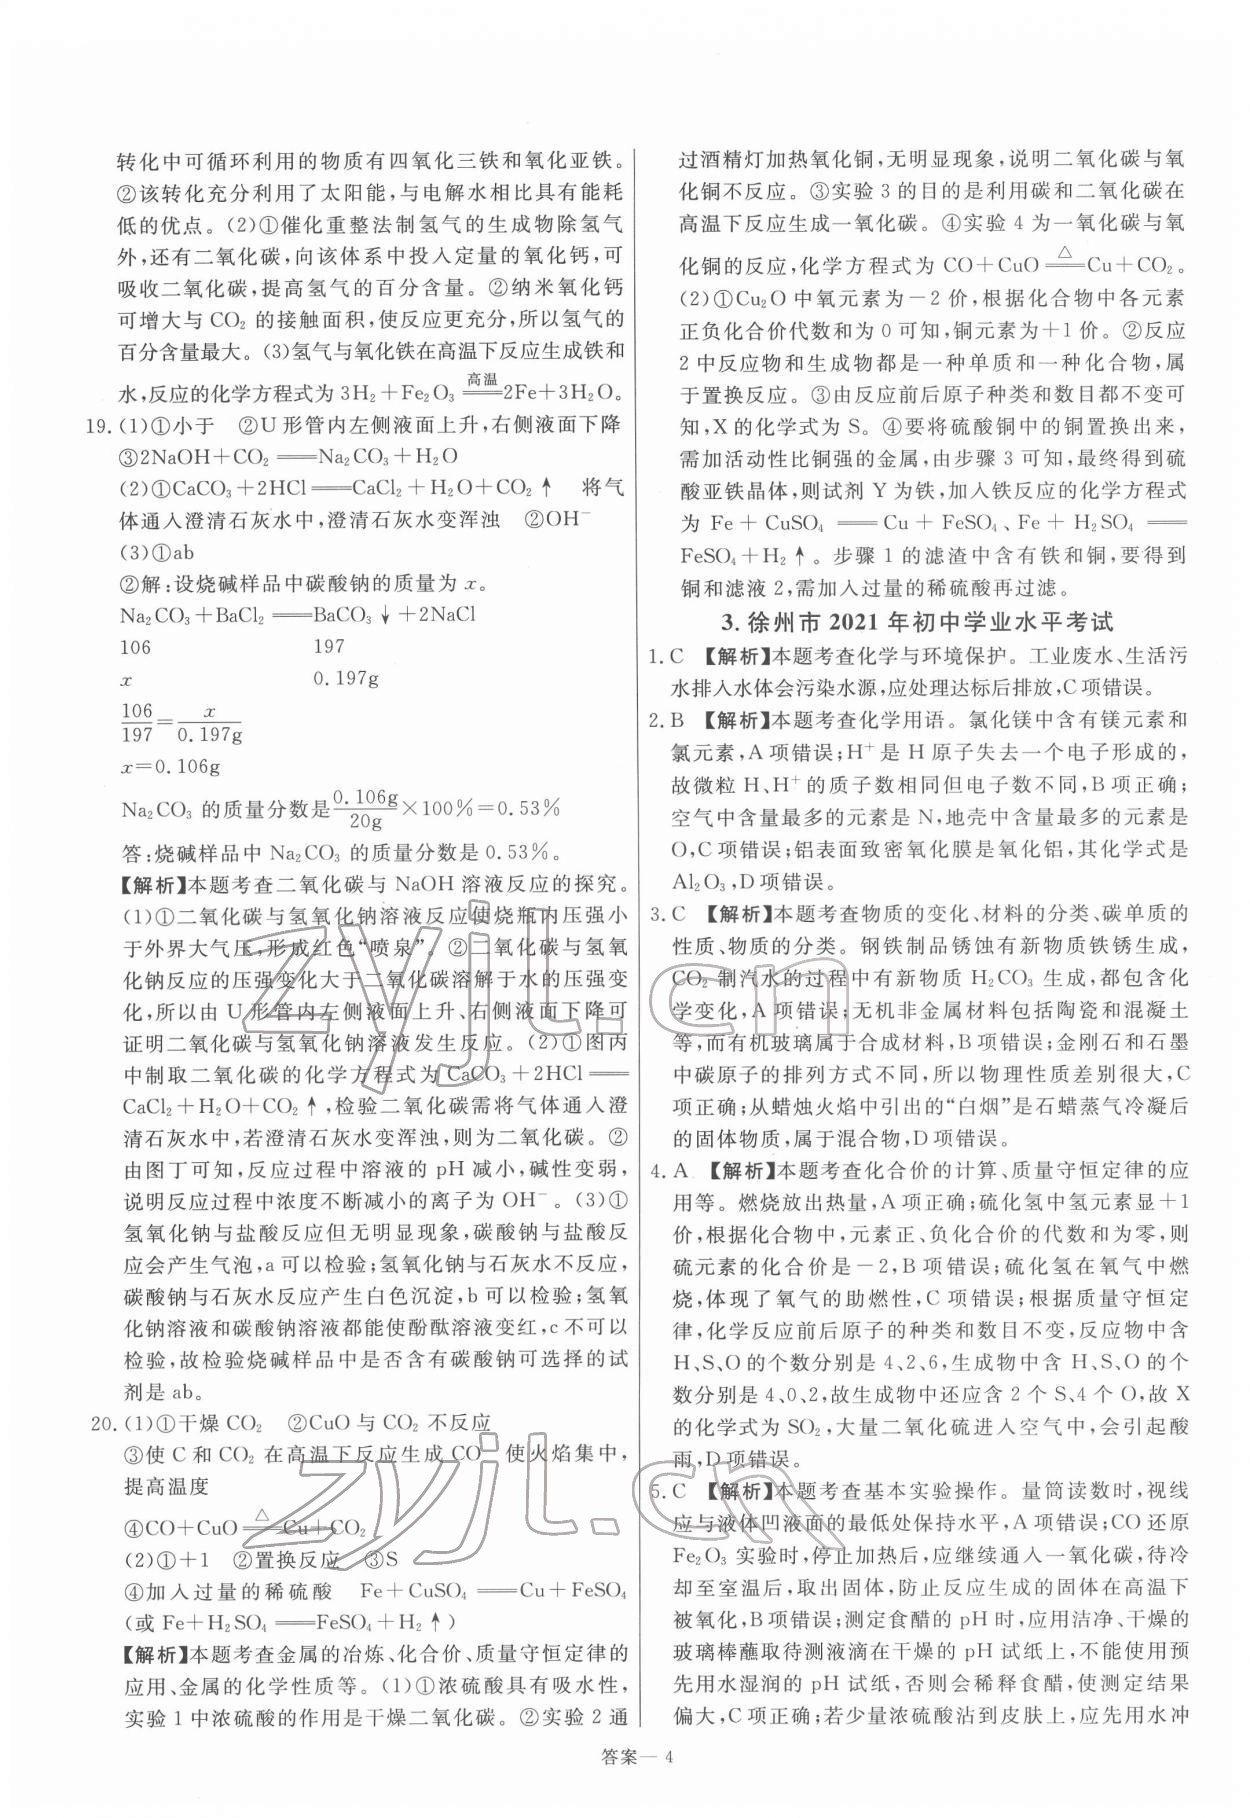 转化中可循环利用的物质有四氧化三铁和氧化亚铁。
②该转化充分利用了太阳能,与电解水相比具有能耗
低的优点。(2)①催化重整法制氢气的生成物除氢气
外,还有二氧化碳,向该体系中投入定量的氧化钙,可
吸收二氧化碳,提高氢气的百分含量。②纳米氧化钙
可增大与 CO₂ 的接触面积,使反应更充分,所以氢气的
百分含量最大。(3)氢气与氧化铁在高温下反应生成铁和
水,反应的化学方程式为 3H₂+Fe₂O₃ ══高温══ 2Fe+3H₂O。
19. (1)①小于 ②U 形管内左侧液面上升,右侧液面下降
③2NaOH+CO₂ ══ Na₂CO₃+H₂O
(2)①CaCO₃+2HCl ══ CaCl₂+H₂O+CO₂↑ 将气
体通入澄清石灰水中,澄清石灰水变浑浊 ②OH⁻
(3)①ab
②解:设烧碱样品中碳酸钠的质量为 x。
Na₂CO₃+BaCl₂ ══ BaCO₃↓+2NaCl
106 197
x 0.197g
106/197=x/0.197g
x=0.106g
Na₂CO₃ 的质量分数是0.106g/20g×100%=0.53%
答:烧碱样品中 Na₂CO₃ 的质量分数是 0.53%。
【解析】本题考查二氧化碳与 NaOH 溶液反应的探究。
(1)①二氧化碳与氢氧化钠溶液反应使烧瓶内压强小
于外界大气压,形成红色“喷泉”。②二氧化碳与氢氧
化钠反应的压强变化大于二氧化碳溶解于水的压强变
化,所以由 U 形管内左侧液面上升、右侧液面下降可
证明二氧化碳与氢氧化钠溶液发生反应。(2)①图丙
中制取二氧化碳的化学方程式为 CaCO₃+2HCl ══
CaCl₂+H₂O+CO₂↑,检验二氧化碳需将气体通入澄
清石灰水中,若澄清石灰水变浑浊,则为二氧化碳。②
由图丁可知,反应过程中溶液的 pH 减小,碱性变弱,
说明反应过程中浓度不断减小的离子为 OH⁻。(3)①
氢氧化钠与盐酸反应但无明显现象,碳酸钠与盐酸反
应会产生气泡,a 可以检验;氢氧化钠与石灰水不反应,
碳酸钠与石灰水反应产生白色沉淀,b 可以检验;氢氧
化钠溶液和碳酸钠溶液都能使酚酞溶液变红,c 不可以
检验,故检验烧碱样品中是否含有碳酸钠可选择的试
剂是 ab。
20. (1)①干燥 CO₂ ②CuO 与 CO₂ 不反应
③使 C 和 CO₂ 在高温下反应生成 CO 使火焰集中,
提高温度
④CO+CuO ══△══ Cu+CO₂
(2)①+1 ②置换反应 ③S
④加入过量的稀硫酸 Fe+CuSO₄ ══ Cu+FeSO₄
(或 Fe+H₂SO₄ ══ FeSO₄+H₂↑)
【解析】本题考查金属的冶炼、化合价、质量守恒定律的
应用、金属的化学性质等。(1)①浓硫酸具有吸水性,
实验 1 中浓硫酸的作用是干燥二氧化碳。②实验 2 通
过酒精灯加热氧化铜,无明显现象,说明二氧化碳与氧
化铜不反应。③实验 3 的目的是利用碳和二氧化碳在
高温下反应生成一氧化碳。④实验 4 为一氧化碳与氧
化铜的反应,化学方程式为 CO+CuO ══△══ Cu+CO₂。
(2)①Cu₂O 中氧元素为-2 价,根据化合物中各元素
正负化合价代数和为 0 可知,铜元素为+1 价。②反应
2 中反应物和生成物都是一种单质和一种化合物,属
于置换反应。③由反应前后原子种类和数目都不变可
知,X 的化学式为 S。④要将硫酸铜中的铜置换出来,
需加活动性比铜强的金属,由步骤 3 可知,最终得到硫
酸亚铁晶体,则试剂 Y 为铁,加入铁反应的化学方程式
为 Fe+CuSO₄ ══ Cu+FeSO₄、Fe+H₂SO₄ ══
FeSO₄+H₂↑。步骤 1 的滤渣中含有铁和铜,要得到
铜和滤液 2,需加入过量的稀硫酸再过滤。
3. 徐州市 2021 年初中学业水平考试
1. C 【解析】本题考查化学与环境保护。工业废水、生活污
水排入水体会污染水源,应处理达标后排放,C 项错误。
2. B 【解析】本题考查化学用语。氯化镁中含有镁元素和
氯元素,A 项错误;H⁺ 是 H 原子失去一个电子形成的,
故微粒 H、H⁺ 的质子数相同但电子数不同,B 项正确;
空气中含量最多的元素是 N,地壳中含量最多的元素是
O,C 项错误;铝表面致密氧化膜是氧化铝,其化学式是
Al₂O₃,D 项错误。
3. C 【解析】本题考查物质的变化、材料的分类、碳单质的
性质、物质的分类。钢铁制品锈蚀有新物质铁锈生成,
CO₂ 制汽水的过程中有新物质 H₂CO₃ 生成,都包含化
学变化,A 项错误;无机非金属材料包括陶瓷和混凝土
等,而有机玻璃属于合成材料,B 项错误;金刚石和石墨
中碳原子的排列方式不同,所以物理性质差别很大,C
项正确;从蜡烛火焰中引出的“白烟”是石蜡蒸气冷凝后
的固体物质,属于混合物,D 项错误。
4. A 【解析】本题考查化合价的计算、质量守恒定律的应
用等。燃烧放出热量,A 项正确;硫化氢中氢元素显+1
价,根据化合物中,元素正、负化合价的代数和为零,则
硫元素的化合价是-2,B 项错误;硫化氢在氧气中燃
烧,体现了氧气的助燃性,C 项错误;根据质量守恒定
律,化学反应前后原子的种类和数目不变,反应物中含
H、S、O 的个数分别是 4、2、6,生成物中含 H、S、O 的个
数分别是 4、0、2,故生成物中还应含 2 个 S、4 个 O,故 X
的化学式为 SO₂,大量二氧化硫进入空气中,会引起酸
雨,D 项错误。
5. C 【解析】本题考查基本实验操作。量筒读数时,视线
应与液体凹液面的最低处保持水平,A 项错误;CO 还原
Fe₂O₃ 实验时,停止加热后,应继续通入一氧化碳,待冷
却至室温后,取出固体,防止反应生成的固体在高温下
被氧化,B 项错误;测定食醋的 pH 时,应用洁净、干燥的
玻璃棒蘸取待测液滴在干燥的 pH 试纸上,不能使用预
先用水湿润的 pH 试纸,否则会稀释食醋,使测定结果
偏大,C 项正确;若少量浓硫酸沾到皮肤上,应先用水冲
答案— 4
zyjl.cn
zyjl.cn